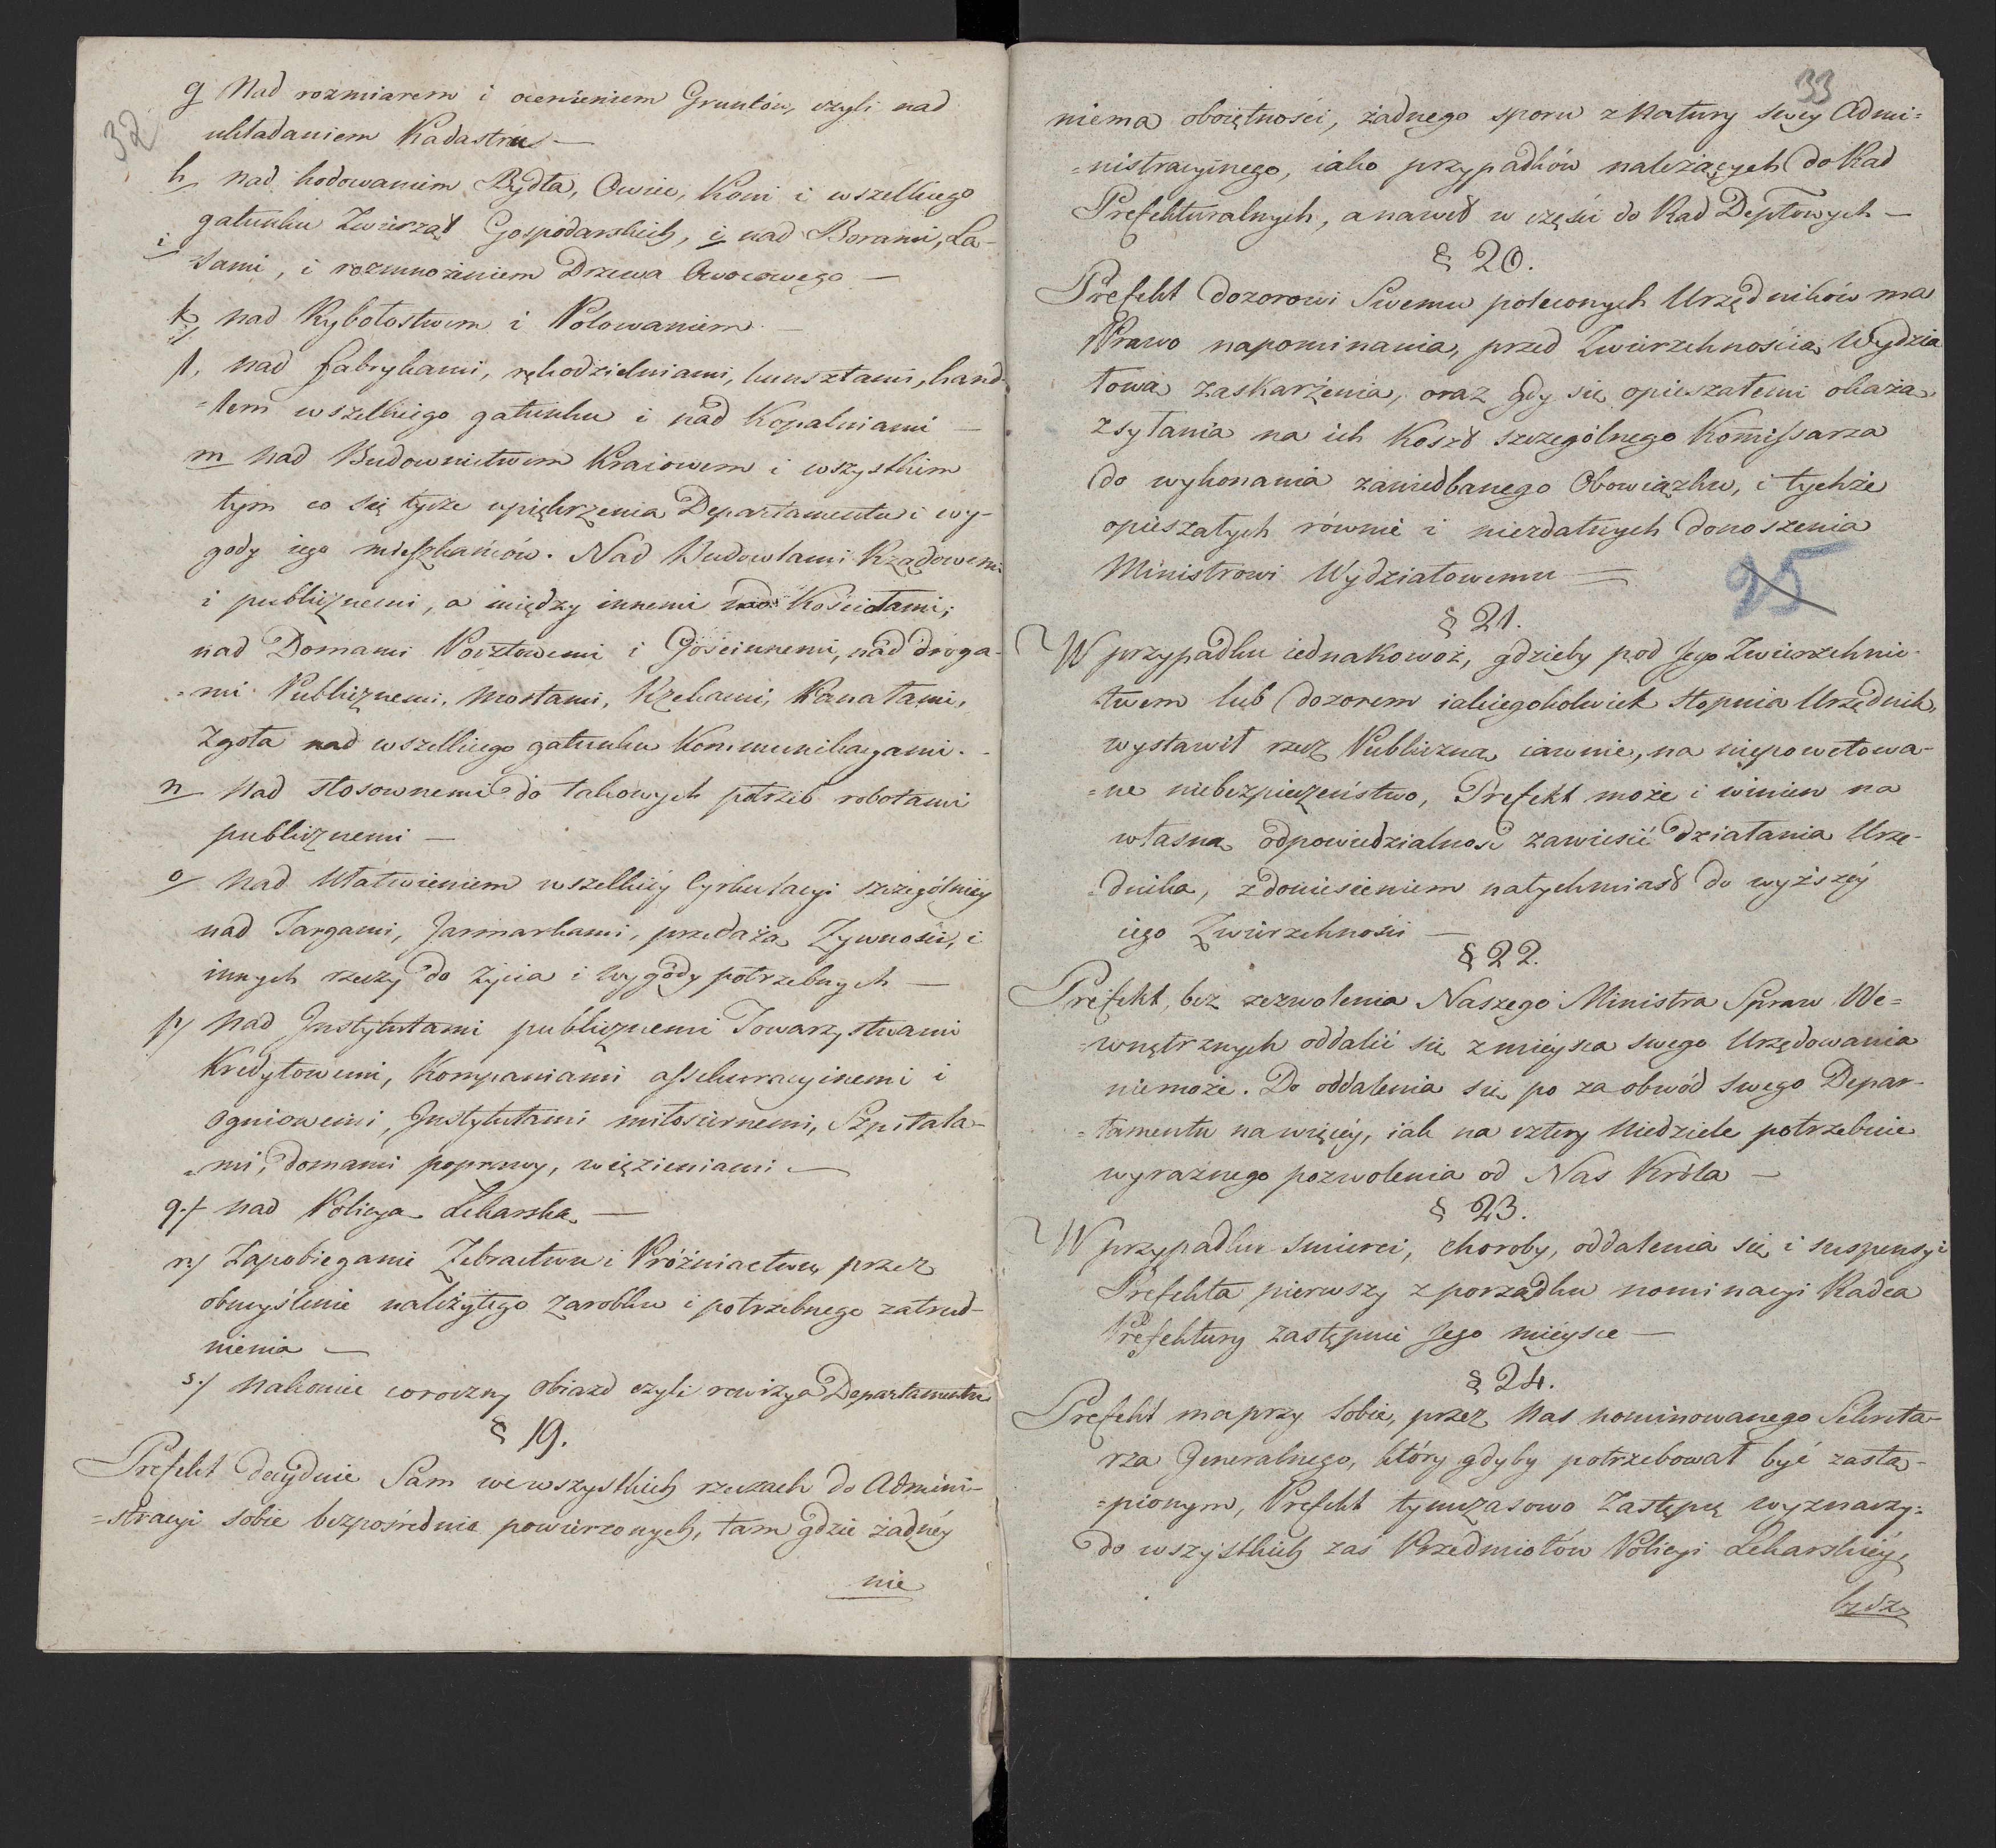 32
g Nad rozmiarem i ocenieniem Gruntów, czyli nad
układaniem Kadastru —
h nad hodowaniem Bydła, Owiec, Koni i wszelkiego
gatunku Zwierząt Gospodarskich, i nad Borami, La-
i =sami, i rozmnożeniem Drzewa Owocowego —
k nad Rybołostwem i Polowaniem —
l, nad fabrykami, rękodzielniami, kunsztami, hand-
=lem wszelkiego gatunku i nad Kopalniami —
m nad Budownictwem Kraiowem i wszystkim
tym co się tycze upiękrzenia Departamentu i wy-
gody iego mieszkańców. Nad Budowlami Rządowemi
i publicznemi, a między innemi nad Kościołami;
nad Domami Pocztowemi i Gościnnemi, nad droga-
=mi Publicznemi, Mostami, Rzekami, Kanałami,
Zgoła nad wszelkiego gatunku Kommunikacyami. -
n Nad stosownemi do takowych potrzeb robotami
publicznemi —
o Nad Ułatwieniem wszelkiey Cyrkulacyi szczególniey
nad Targami, Jarmarkami, przedażą Żywności, i
innych rzeczy do życia i wygody potrzebnych —
p/ Nad Instytutami publicznemi Towarzystwami
Kredytowemi, Kompaniami assekuracyinemi i
Ogniowemi, Instytutami miłosiernemi, Szpitala-
=mi, domami poprawy, więzieniami —
q./ Nad Policyą Lekarską —
r/ Zapobieganie Żebractwu i Próżniactwu przez
obmyślenie należytego zarobku i potrzebnego zatrud-
nienia —
s./ Nakoniec coroczny obiazd czyli rewizya Departamentu
§ 19.
Prefekt decyduie Sam we wszystkich rzeczach do Admini-
=stracyi sobie bezpośrednie powierzonych, tam gdzie żadney
nie
33
niema oboiętności, żadnego sporu z Natury swey Admi=
=nistracyinego, iako przypadków należących do Rad
Prefekturalnych, a nawet w części do Rad Deptowych —
§ 20.
Prefekt dozorowi Swemu poleconych Urzędników ma
Prawo napominania, przed Zwierzchnością Wydzia
łową zaskarżenia, oraz gdy się opieszałemi okażą
Zsyłania na ich Koszt szczególnego Kommissarza
do wykonania zaniedbanego Obowiązku, i tychże
opieszałych równie i niezdatnych donoszenia
Ministrowi Wydziałowemu —
95
§ 21.
W przypadku iednakowoż, gdzieby pod Jego Zwierzchnic-
=twem lub dozorem iakiegokolwiek stopnia Urzędnik,
wystawił rzecz Publiczną iawnie, na niepowetowa-
=ne niebezpieczeństwo, Prefekt może i winien na
własną odpowiedzialność zawiesić działania Urzę-
=dnika, z doniesieniem natychmiast do wyższey
iego Zwierzchności —
§ 22.
Prefekt, bez zezwolenia Naszego Ministra Spraw We=
=wnętrznych oddalić się z mieysca swego Urzędowania
niemoże. Do oddalenia się po za obwód swego Depar-
=tamentu nawięcey, iak na cztery Niedziele potrzebuie
wyraźnego pozwolenia od Nas Króla —
§ 23.
W przypadku smierci, choroby, oddalenia się i suspensyi
Prefekta pierwszy z porządku nominacyi Radca
Prefektury zastępuie Jego mieysce —
§ 24.
Prefekt ma przy sobie, przez Nas nominowanego Sekreta-
rza Generalnego, który gdyby potrzebował być zastą-
=pionym, Prefekt tymczasowo Zastępcę wyznaczy=
do wszystkich zaś Przedmiotów Policyi Lekarskiey,
będzie